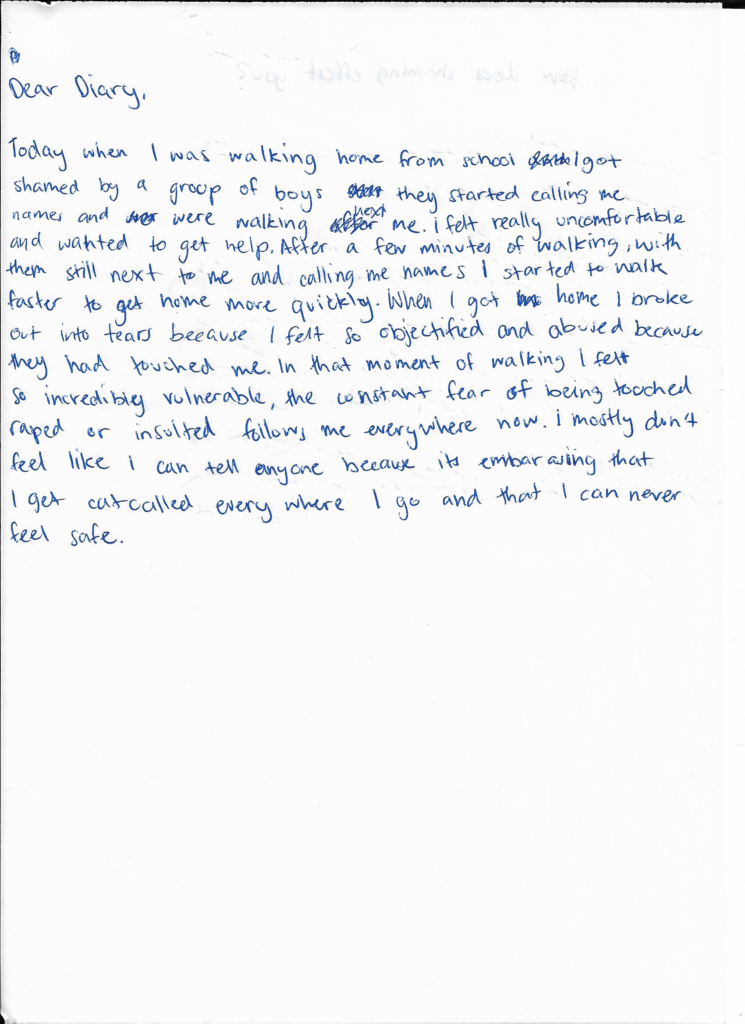 Dear Diary,
Today when I was walking home from school I got
shamed by a group of boys they started calling me
names and were walking next me. i felt really uncomfortable
and wanted to get help. After a few minutes of walking, with
them still next to me and calling me names I started to walk
faster to get home more quickly. When I got home I broke
out into tears because I felt so objectified and abused because
they had touched me. In that moment of walking I felt
so incredibley vulnerable, the constant fear of being touched
raped or insulted follows me everywhere now. i mostly don't
feel like i can tell anyone because its embarassing that
I get catcalled every where I go and that I can never
feel safe.